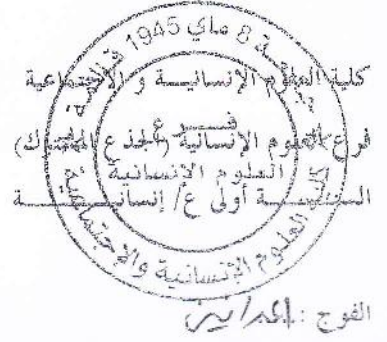 8 ماي 1945
كلية العلوم الإنسانية و الاجتماعية
فرع
فرع العلوم الإنسانية (الجذع المشترك)
العلوم الإنسانية
السنة أولى ع/ إنسانية
العلوم الإنسانية والإجتماعية
الفوج :